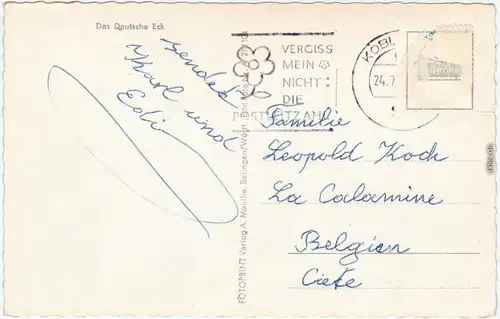 Das Deutsche Eck
sendet
Karl und
Edi
VERGISS
MEIN
NICHT:
DIE
POSTLEITZAHL
KOBL
24. 7.
Familie
Leopold Koch
La Calamine
Belgien
FOTOPRINT Verlag A. Mauthe, Balingen/Württ.